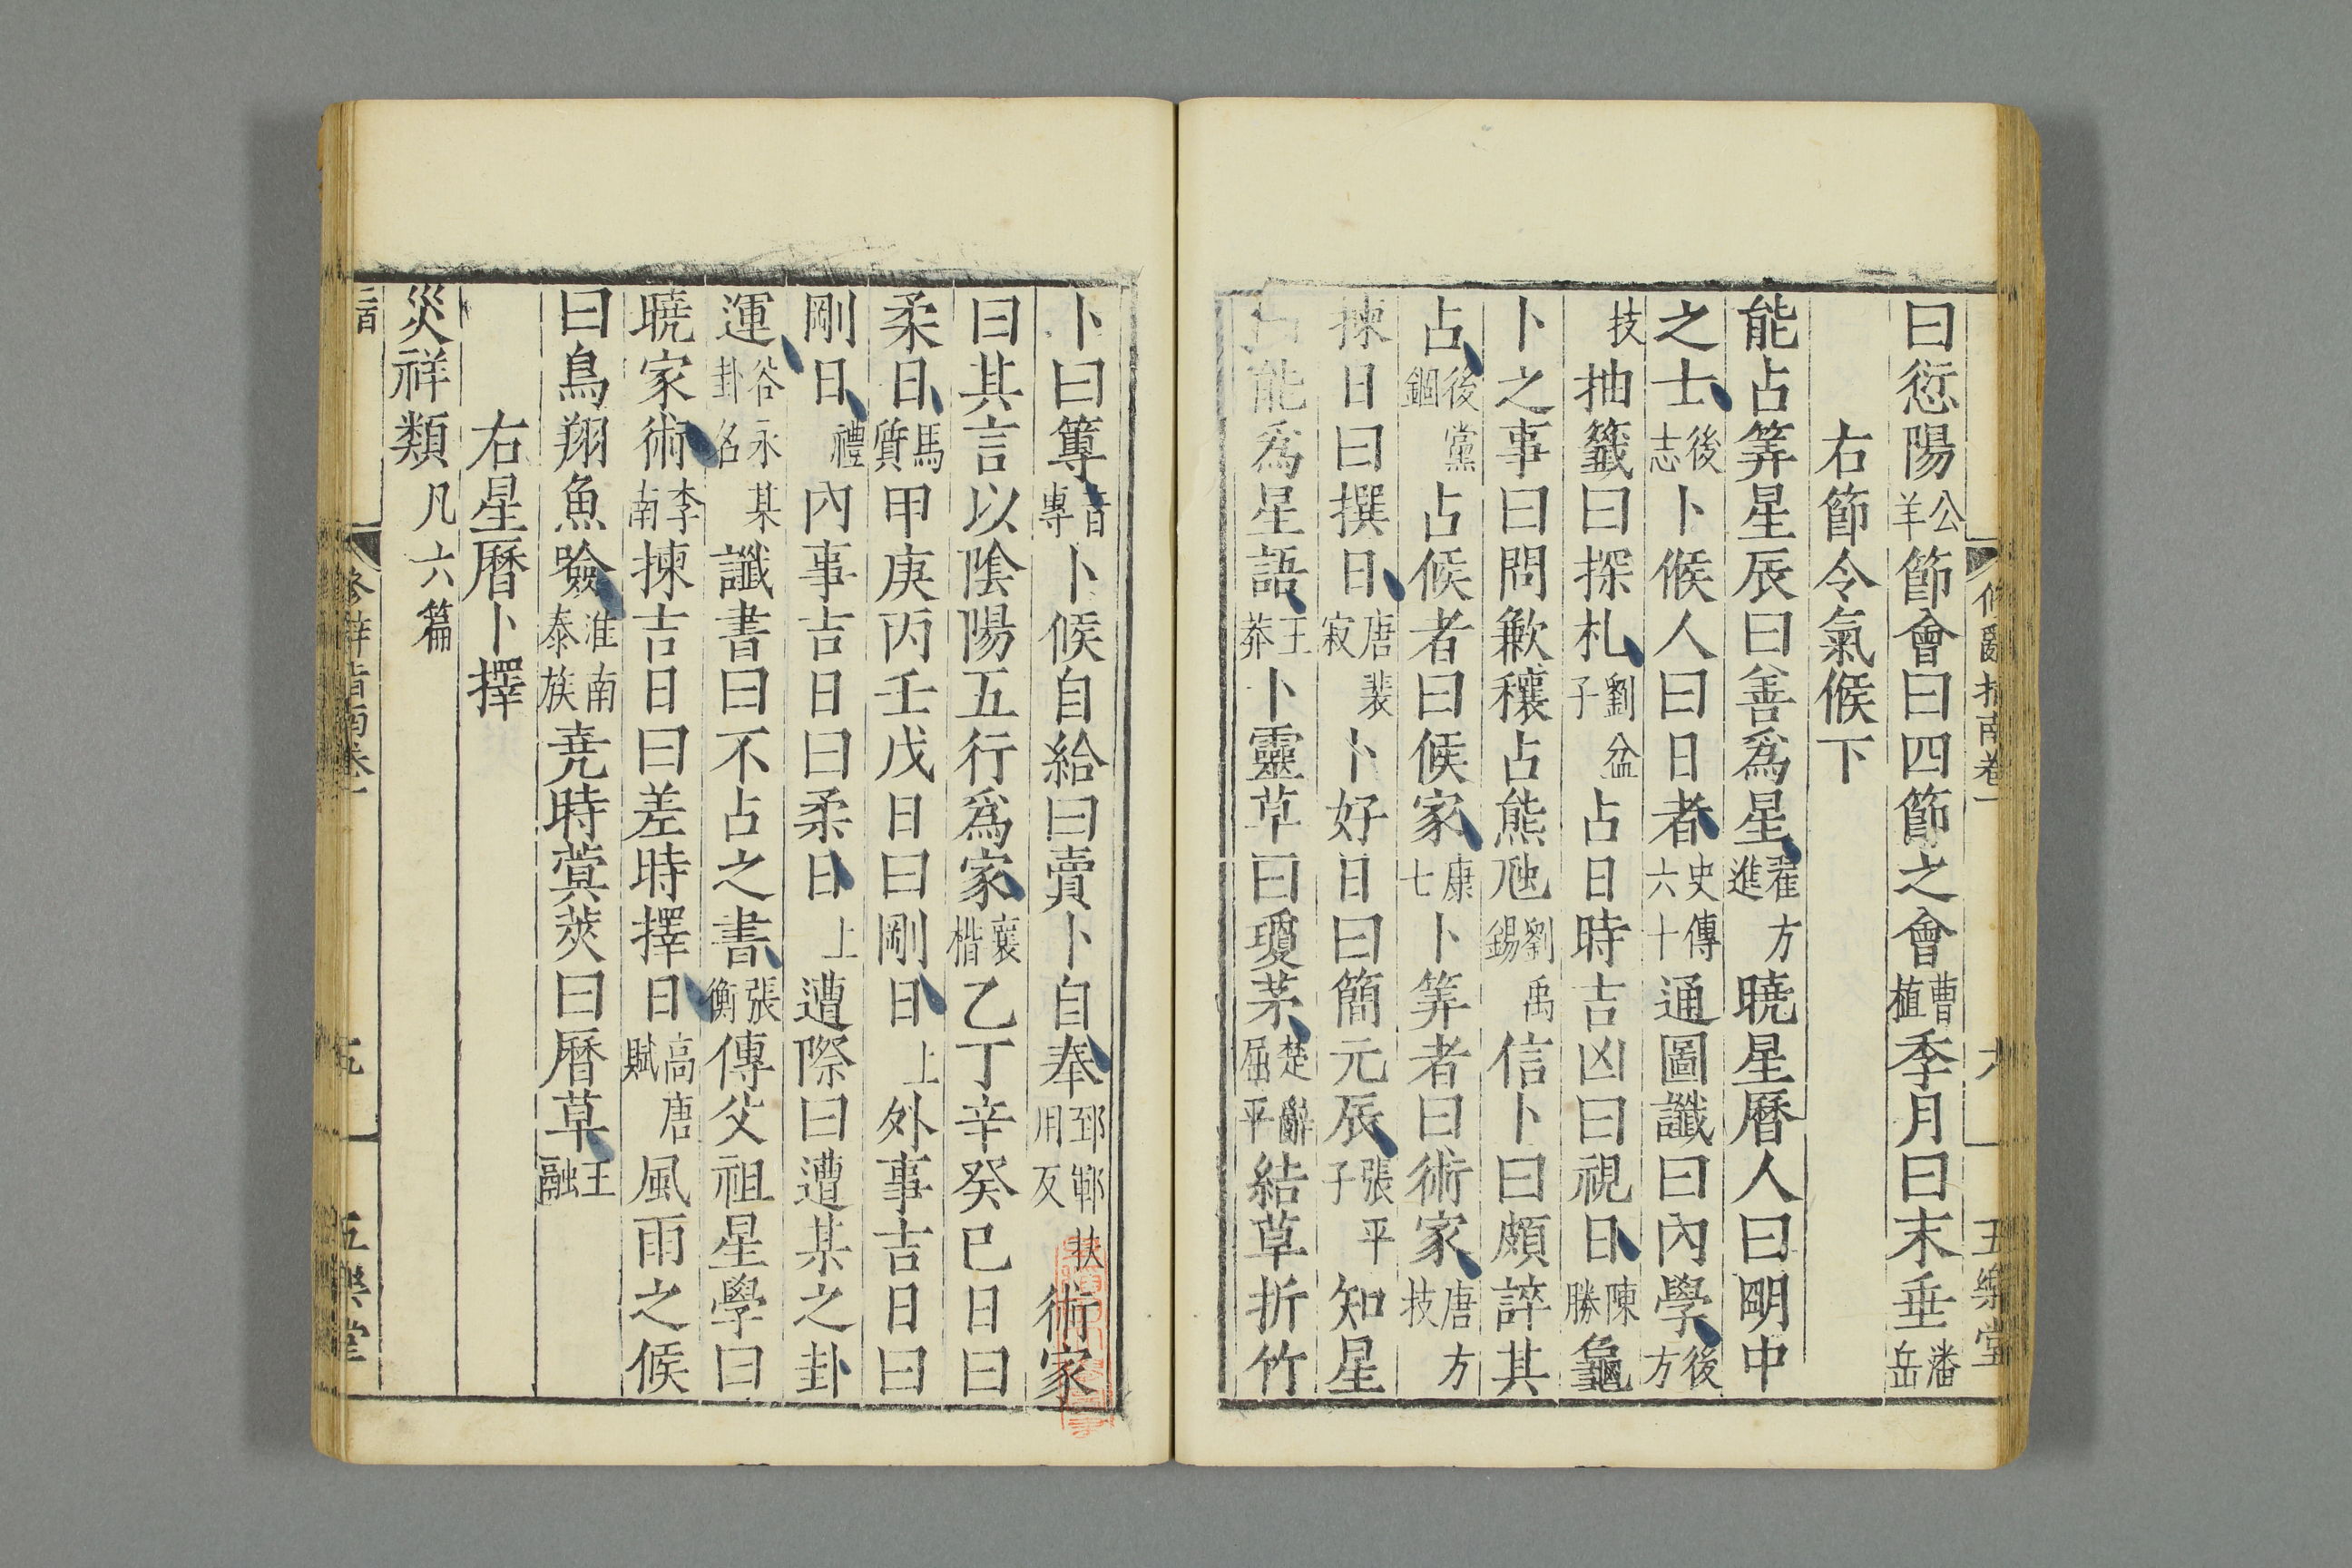 曰愆陽公羊節會曰四節之會曹植季月曰末垂潘岳
右節令氣候下
能占筭星辰曰善爲星翟方進曉星曆人曰明中
之士後志卜候人曰日者史傳六十通圖讖曰內學後方
技抽籤曰探札劉盆子占日時吉凶曰視日陳勝龜
卜之事曰問歉穰占熊虺劉禹錫信卜曰頗誶其
占後黨錮占候者曰候家康七卜筭者曰術家唐方技
揀日曰撰日唐裴寂卜好日曰簡元辰張平子知星
能爲星語王莽卜靈草曰瓊茅楚辭屈平結草折竹
卜曰篿音專卜候自給曰賣卜自奉郅鄆扶用反術家
曰其言以陰陽五行爲家襄楷乙丁辛癸巳日曰
柔日馬質甲庚丙壬戊日曰剛日上外事吉日曰
剛日禮內事吉日曰柔日上遭際曰遭某之卦
運谷永某卦名讖書曰不占之書張衡傳父祖星學曰
曉家術李南揀吉日曰差時擇日高唐賦風雨之候
曰鳥翔魚險淮南泰族堯時蓂莢曰曆草王融
右星曆卜擇
災祥類凡六篇
修辭指南卷一
五